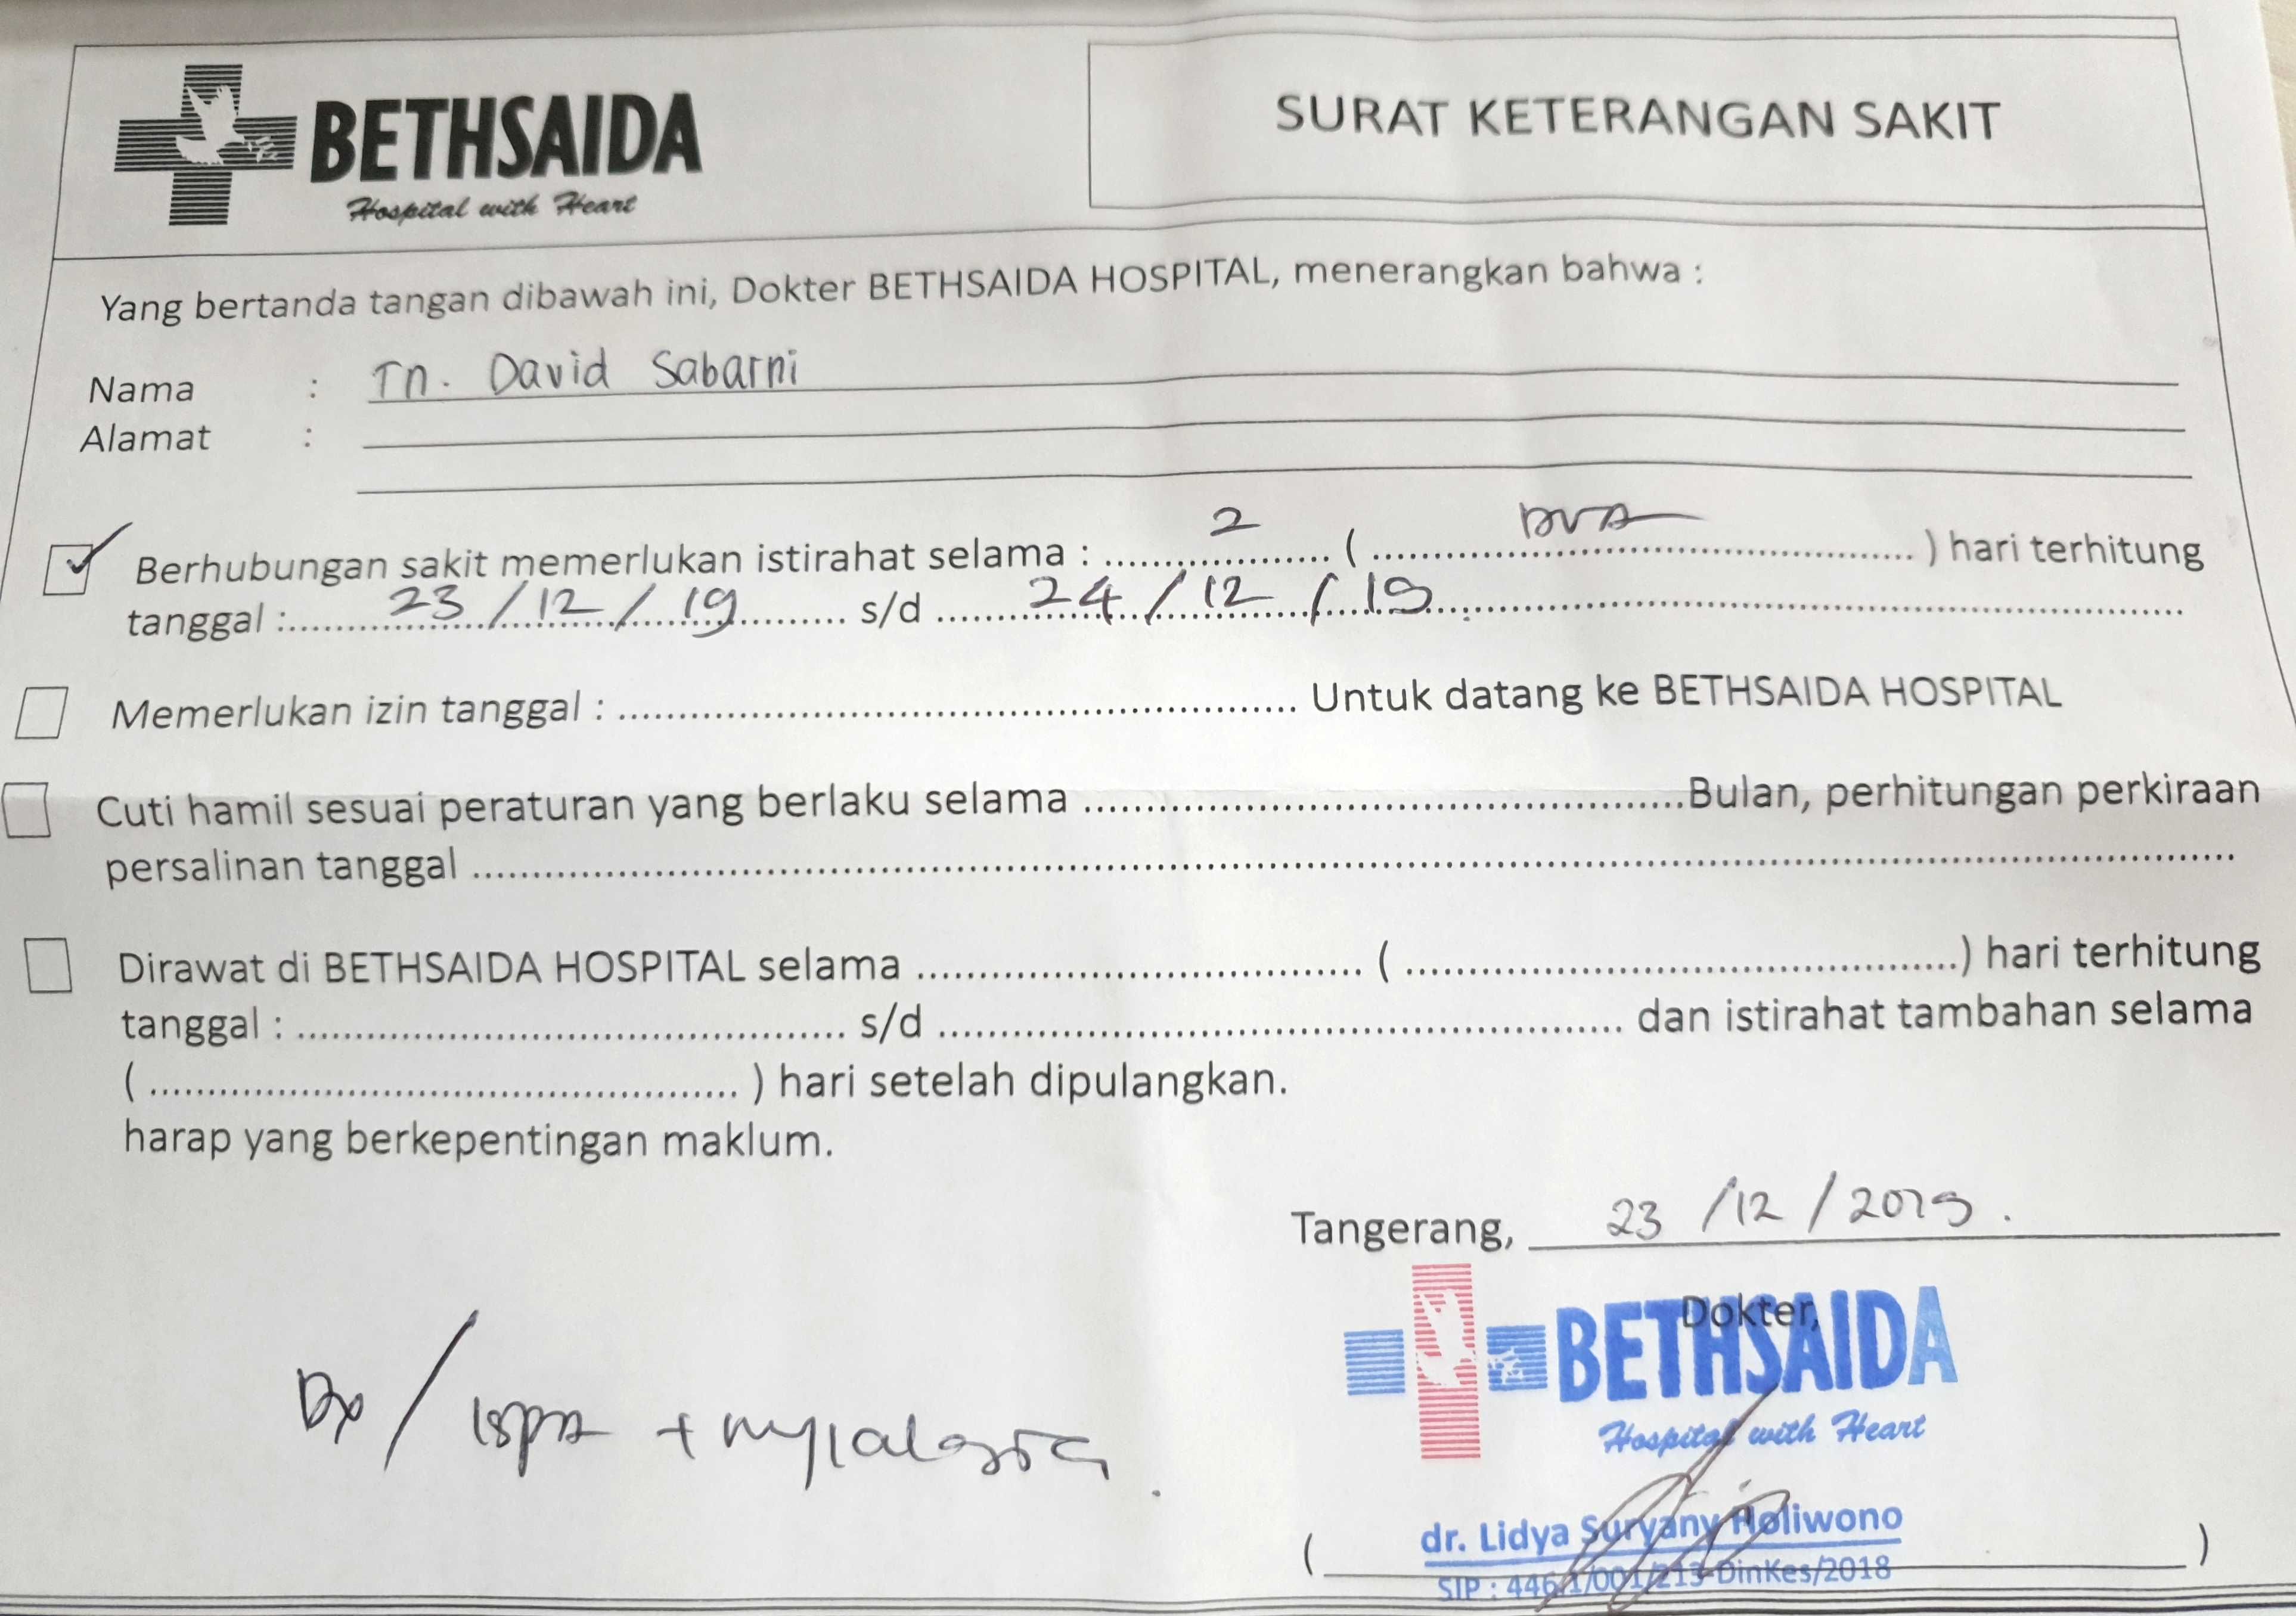 BETHSAIDA
Hospital with Heart
SURAT KETERANGAN SAKIT
Yang bertanda tangan dibawah ini, Dokter BETHSAIDA HOSPITAL, menerangkan bahwa :
Nama : Tn. David Sabarni
Alamat :
Berhubungan sakit memerlukan istirahat selama : 2 ( DUA ) hari terhitung
tanggal : 23 / 12 / 19 s/d 24 / 12 / 19.
Memerlukan izin tanggal : Untuk datang ke BETHSAIDA HOSPITAL
Cuti hamil sesuai peraturan yang berlaku selama Bulan, perhitungan perkiraan
persalinan tanggal
Dirawat di BETHSAIDA HOSPITAL selama ( ) hari terhitung
tanggal : s/d dan istirahat tambahan selama
( ) hari setelah dipulangkan.
harap yang berkepentingan maklum.
Tangerang, 23 / 12 / 2019.
Dokter,
BETHSAIDA
Hospital with Heart
Dx / ISPA + myialgia.
( dr. Lidya Suryany Holiwono )
SIP : 446.1/001/213-DinKes/2018